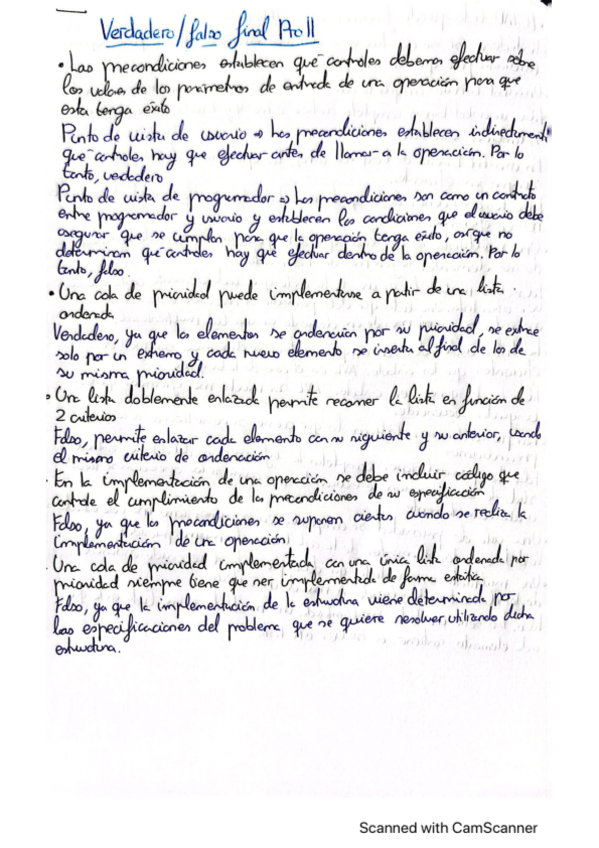 Verdadero/falso final Pro II
• Las precondiciones establecen qué controles debemos efectuar sobre
los valores de los parámetros de entrada de una operación para que
esta tenga éxito
Punto de vista de usuario → Las precondiciones establecen indirectamente
que controles hay que efectuar antes de llamar a la operación. Por lo
tanto, verdadero
Punto de vista de programador → Las precondiciones son como un contrato
entre programador y usuario y establecen las condiciones que el usuario debe
asegurar que se cumplan para que la operación tenga éxito, así que no
determinan qué controles hay que efectuar dentro de la operación. Por lo
tanto, falso.
• Una cola de prioridad puede implementarse a partir de una lista
ordenada
Verdadero, ya que los elementos se ordenarían por su prioridad, se extrae
solo por un extremo y cada nuevo elemento se inserta al final de los de
su misma prioridad.
• Una lista doblemente enlazada permite recorrer la lista en función de
2 criterios
Falso, permite enlazar cada elemento con su siguiente y su anterior, usando
el mismo criterio de ordenación
· En la implementación de una operación se debe incluir código que
controle el cumplimiento de las precondiciones de su especificación
Falso, ya que las precondiciones se suponen ciertas cuando se realiza la
implementación de una operación
· Una cola de prioridad implementada con una única lista ordenada por
prioridad siempre tiene que ser implementada de forma estática
Falso, ya que la implementación de la estructura viene determinada por
las especificaciones del problema que se quiere resolver, utilizando dicha
estructura.
Scanned with CamScanner